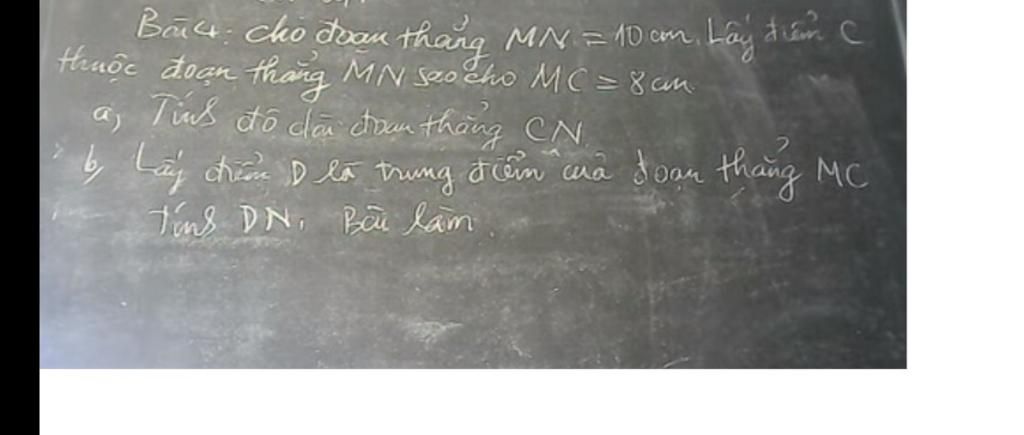 Bài 4: cho đoạn thẳng MN = 10 cm. Lấy điểm C
thuộc đoạn thẳng MN sao cho MC = 8 cm
a, Tính độ dài đoạn thẳng CN.
b, Lấy điểm D là trung điểm của đoạn thẳng MC
Tính DN. Bài làm.